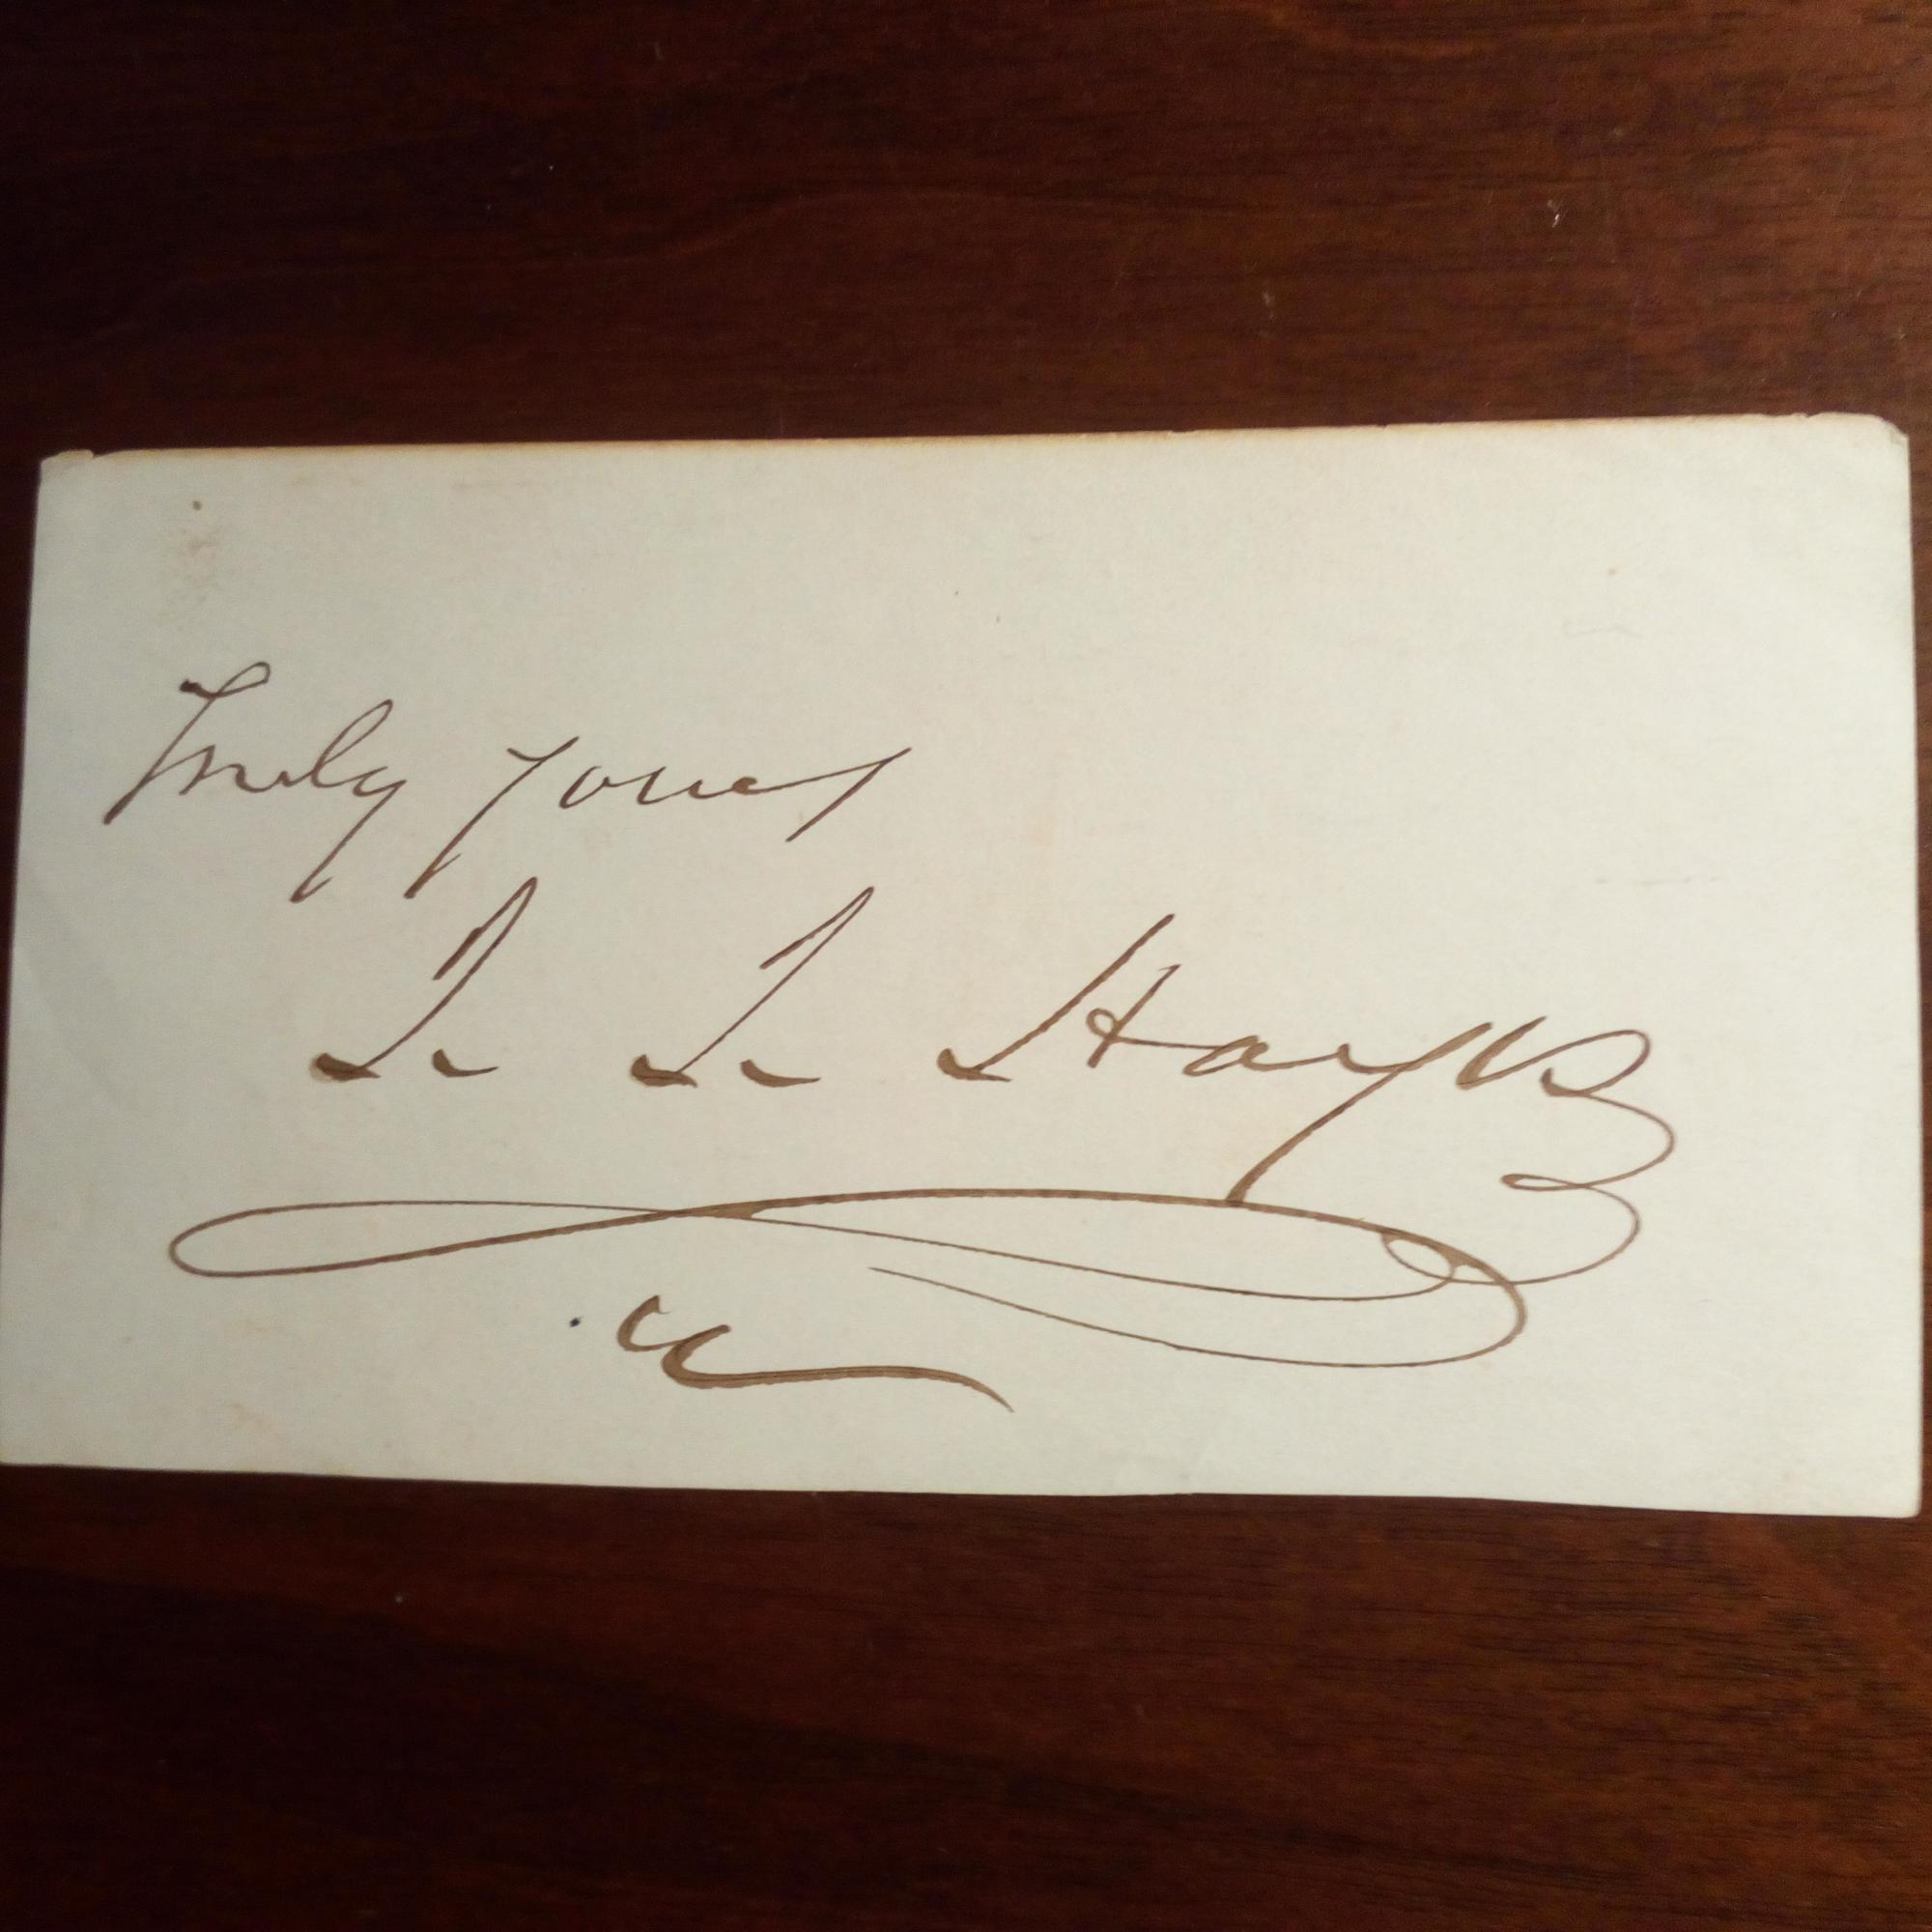 Truly yours
I I Hayes